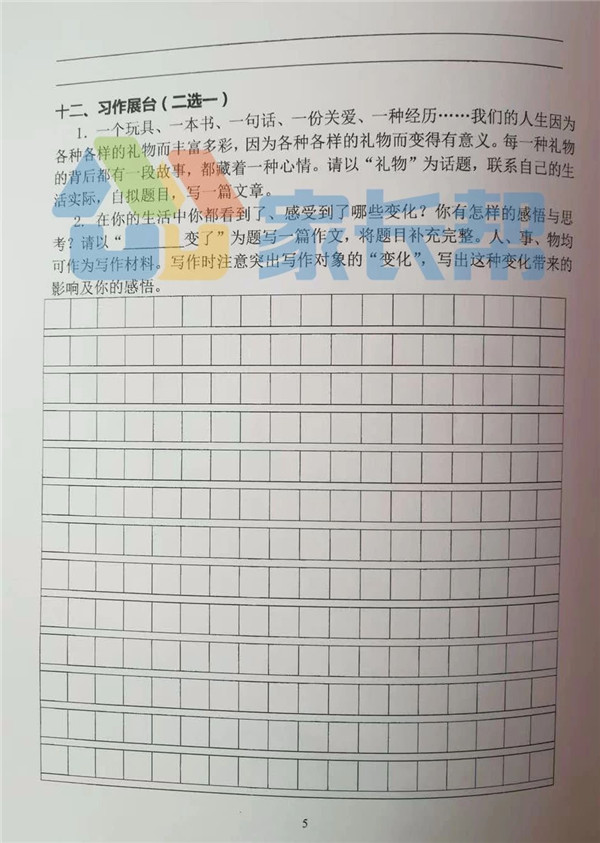 十二、习作展台（二选一）
1. 一个玩具、一本书、一句话、一份关爱、一种经历……我们的人生因为
各种各样的礼物而丰富多彩，因为各种各样的礼物而变得有意义。每一种礼物
的背后都有一段故事，都藏着一种心情。请以“礼物”为话题，联系自己的生
活实际，自拟题目，写一篇文章。
2. 在你的生活中你都看到了、感受到了哪些变化？你有怎样的感悟与思
考？请以“________变了”为题写一篇作文，将题目补充完整。人、事、物均
可作为写作材料。写作时注意突出写作对象的“变化”，写出这种变化带来的
影响及你的感悟。
家长帮
5